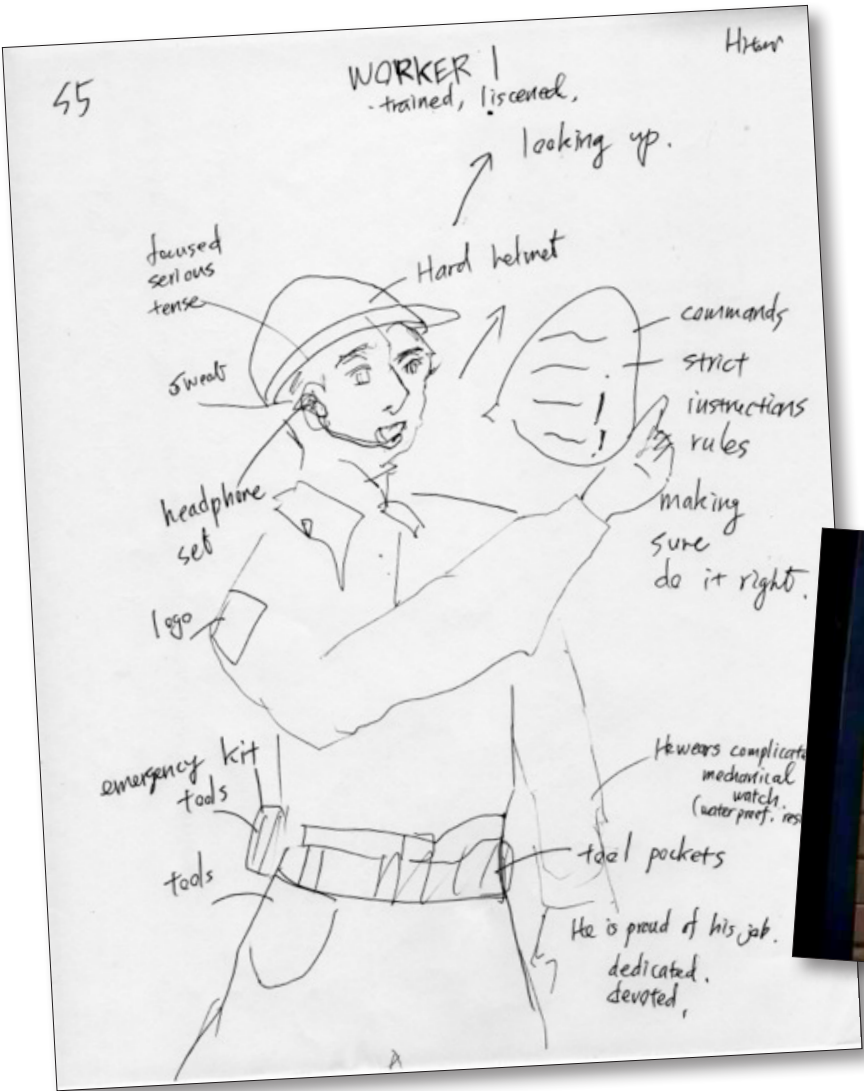 55
WORKER 1
trained, liscened,
looking up.
focused
serious
tense
Hard helmet
sweat
commands
strict
instructions
rules
making
sure
do it right.
headphone
set
logo
emergency kit
tools
tools
He wears complicate
mechanical
watch.
(waterproof. res
tool pockets
He is proud of his job.
dedicated.
devoted,